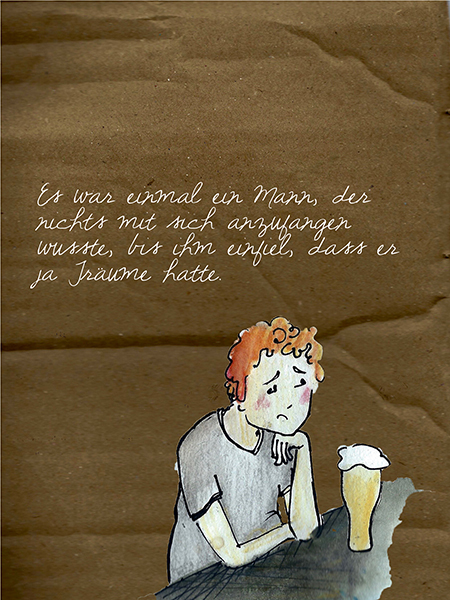 Es war einmal ein Mann, der
nichts mit sich anzufangen
wusste, bis ihm einfiel, dass er
ja Träume hatte.